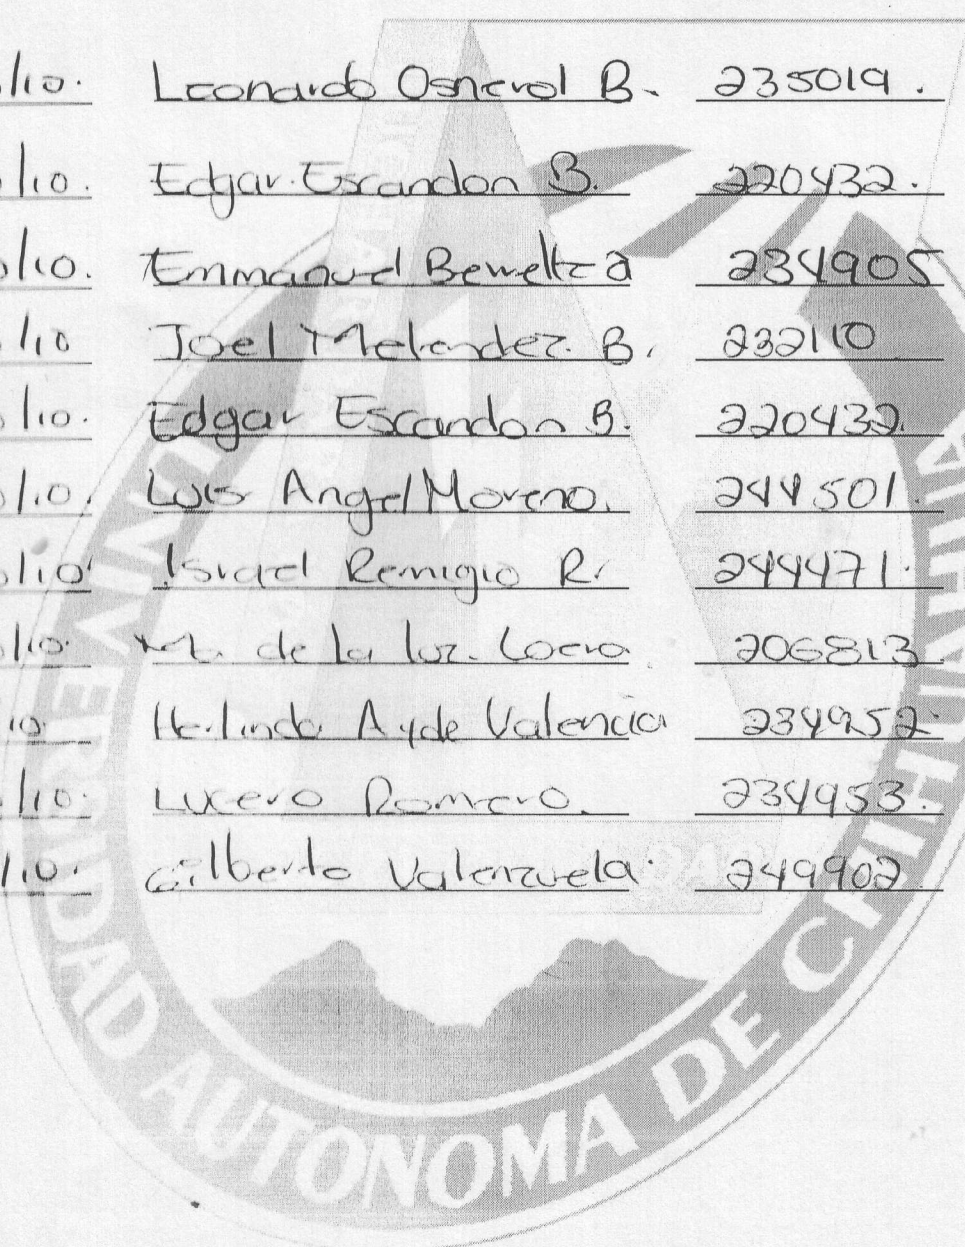 /10. Leonardo Osnerol B. 235019.
/10. Edgar Escandon B. 220432.
/10. Emmanuel 234905
/10 Joel Melendez B. 232110
/10. Edgar Escandon B. 220432.
/10. Luis Angel Moreno. 244501.
/10 Israel Remigio R. 244471.
/10. Ma. de la luz. Loera 206813
10 Herlinda Ayde Valencia 234952.
/10. Lucero Romero. 234953.
/10. Gilberto Valenzuela. 249902
UNIVERSIDAD AUTONOMA DE CHIHUAHUA